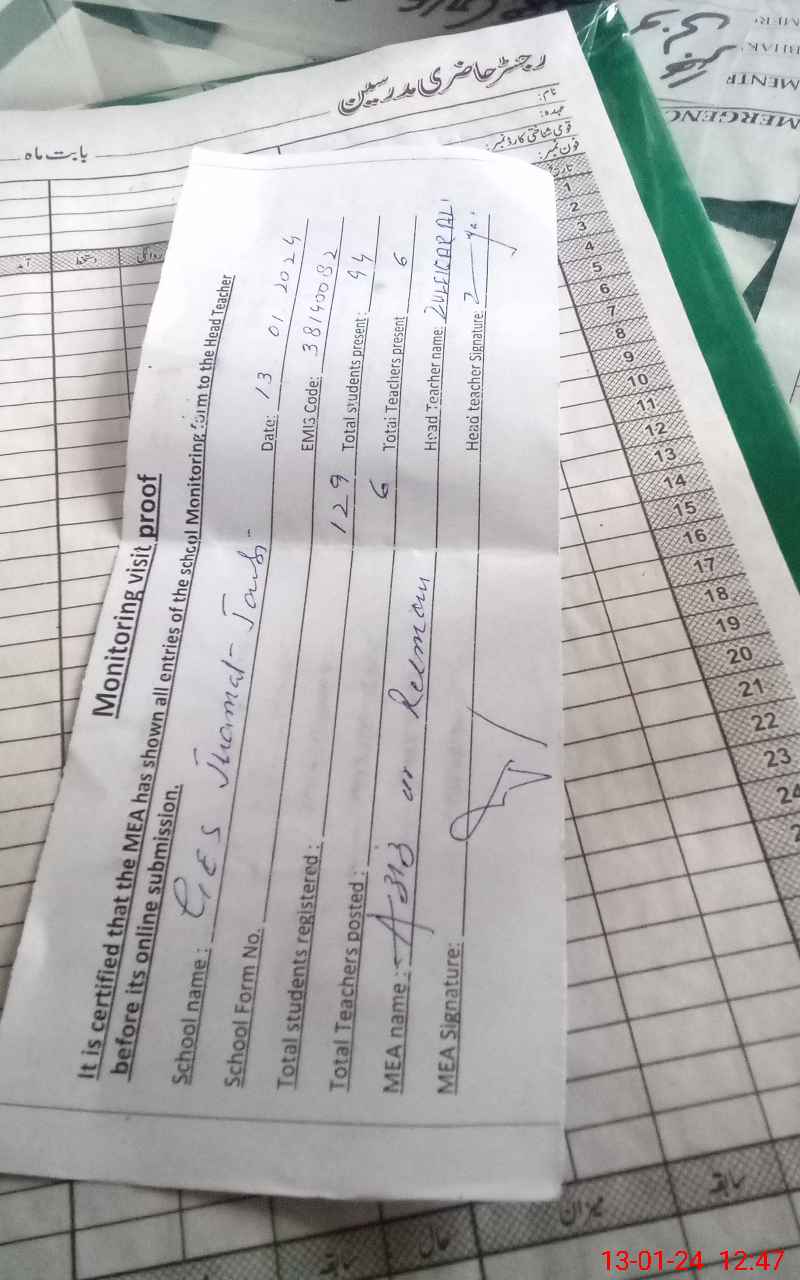 رجسٹر حاضری مدرسین
نام:
عہدہ:
قومی شناختی کارڈ نمبر:
فون نمبر:
بابت ماہ
Monitoring visit proof
It is certified that the MEA has shown all entries of the school Monitoring form to the Head Teacher
before its online submission.
School name : GES Date: 13 01 2024
School Form No. EMIS Code: 38140032
Total students registered : 129 Total students present : 94
Total Teachers posted : 6 Total Teachers present 6
MEA name : ur Rehman Head Teacher name: ZULFIQAR ALI
MEA Signature: Head teacher Signature:
1
2
3
4
5
6
7
8
9
10
11
12
13
14
15
16
17
18
19
20
21
22
23
24
میزان
سابقہ
حال
سابقہ
MERGENC
13-01-24 12:47